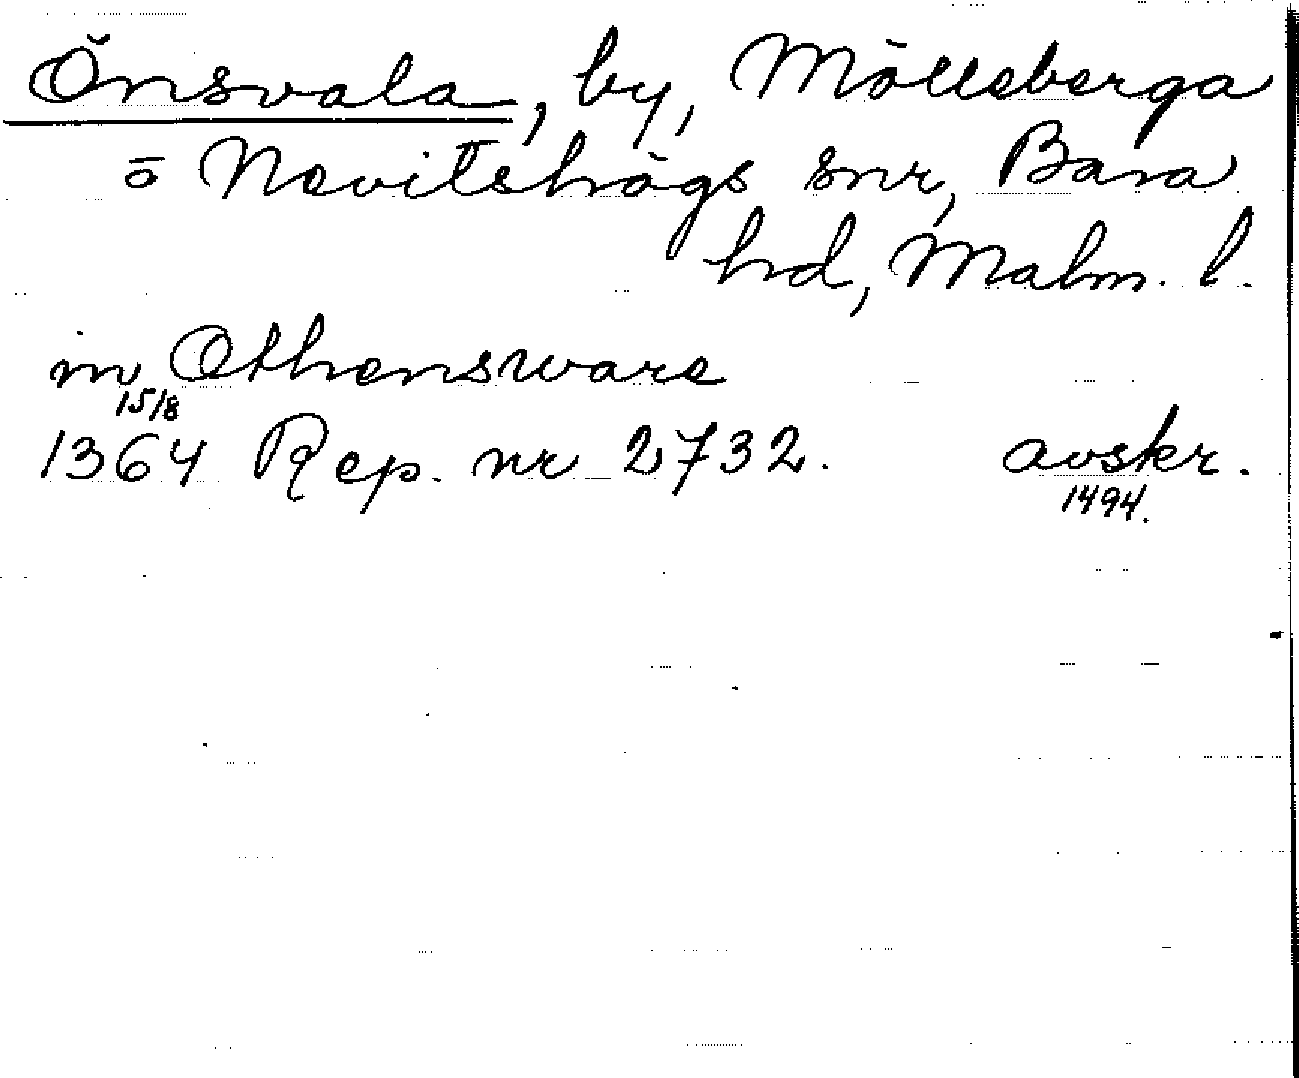 Önsvala, by, Mölleberga
o Nevitshögs snr, Bara
hd, Malm. l.
in Othensware
15/8
1364 Rep. nr 2732. avskr.
1494.